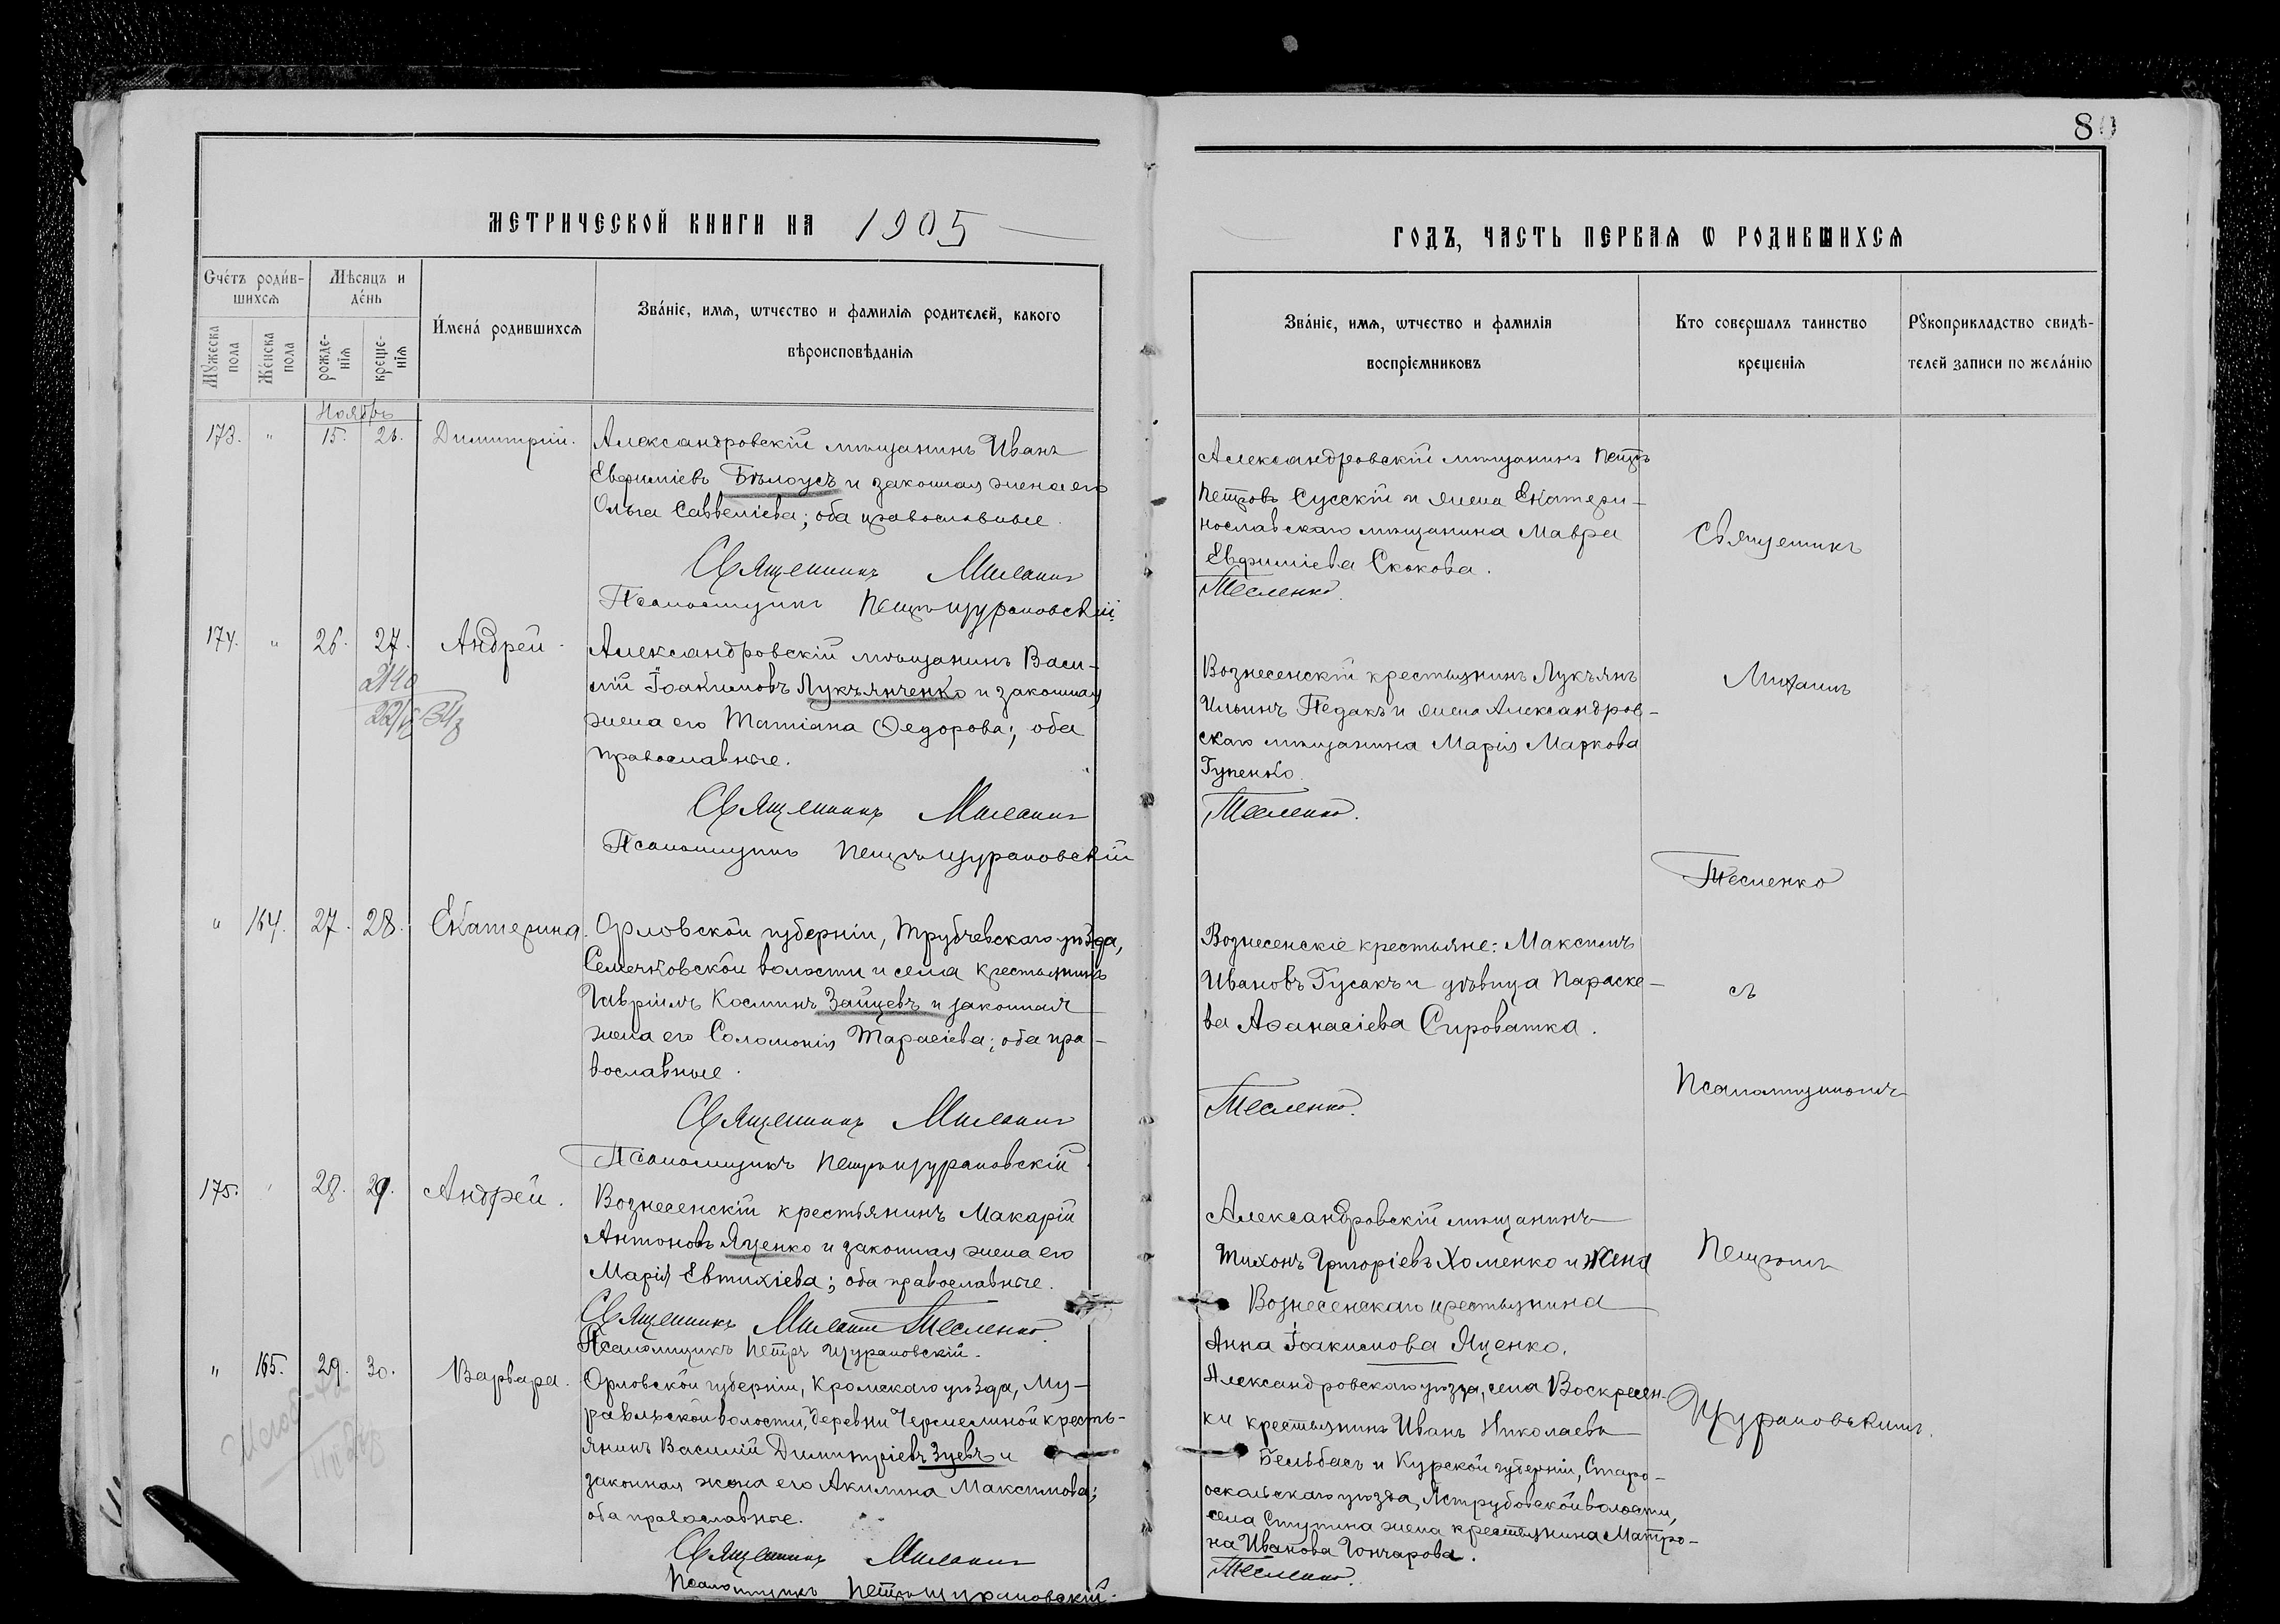 80
МЕТРИЧЕСКОЙ КНИГИ НА 1905
ГОДЪ, ЧАСТЬ ПЕРВАЯ Ѡ РОДИВШИХСЯ
Сче́тъ роди́в-
шихсѧ
Мѣсяцъ и
де́нь
Мꙋжеска
пола
Же́нска
пола
рожде-
нїѧ
креще-
нїѧ
И́мена́ родившихсѧ
Зва́нїе, имѧ, ѡтчество и фамилїѧ родителей, какого
вѣроисповѣданїѧ
Зва́нїе, имѧ, ѡтчество и фамилїя
воспрїемниковъ
Кто совершалъ таинство
крещенїѧ
Рꙋкоприкладство свидѣ-
телей записи по жела́нїю
Ноябрь
173. " 15. 26. Димитрій.
Александровскій мѣщанинъ Иванъ
Евфиміевъ Бѣлоусъ и законная жена его
Ольга Савветіева; оба православные.
Священникъ Михаилъ
Псаломщикъ Петръ Щурановскій.
Александровскій мѣщанинъ Петръ
Петровъ Сусскій и жена Екатери-
нославскаго мѣщанина Мавра
Евфиміева Скокова.
Тесленко.
Священникъ
174. " 26. 27. Андрей.
2140
Александровскій мѣщанинъ Васи-
лій Іоакимовъ Лукъянченко и законная
жена его Татіана Ѳедорова; оба
православные.
Священникъ Михаилъ
Псаломщикъ Петръ Щурановскій
Вознесенскій крестьянинъ Лукъянъ
Ильинъ Педакъ и жена Александров-
скаго мѣщанина Марія Маркова
Гупенко.
Тесленко.
Михаилъ
Тесленко
" 164. 27. 28. Екатерина.
Орловской губерніи, Трубчевскаго уѣзда,
Семечковской волости и села крестьянинъ
Гавріилъ Косминъ Зайцевъ и законная
жена его Соломонія Тарасіева; оба пра-
вославные.
Священникъ Михаилъ
Псаломщикъ Петръ Щурановскій
Вознесенскіе крестьяне: Максимъ
Ивановъ Гусакъ и дѣвица Параске-
ва Аѳанасіева Сироватка.
Тесленко.
съ
Псаломщикомъ
175. " 28. 29. Андрей.
Вознесенскій крестьянинъ Макарій
Антоновъ Яценко и законная жена его
Марія Евтихіева; оба православные.
Священникъ Михаилъ Тесленко.
Псаломщикъ Петръ Щурановскій.
Александровскій мѣщанинъ
Тихонъ Григоріевъ Хоменко и жена
Вознесенскаго крестьянина
Анна Іоакимова Яценко.
Петромъ
" 165. 29. 30. Варвара.
Орловской губерніи, Кромскаго уѣзда, Му-
равльской волости, деревни Чермелиной кресть-
янинъ Василій Димитріевъ Зуевъ и
законная жена его Акилина Максимова;
оба православные.
Священникъ Михаилъ
Псаломщикъ Петръ Щурановскій.
Александровскаго уѣзда, села Воскресен-
ки крестьянинъ Иванъ Николаевъ
Бельбасъ и Курской губерніи, Старо-
оскольскаго уѣзда, Ястребовской волости,
села Ступина жена крестьянина Матро-
на Иванова Гончарова.
Тесленко.
Щурановскимъ.